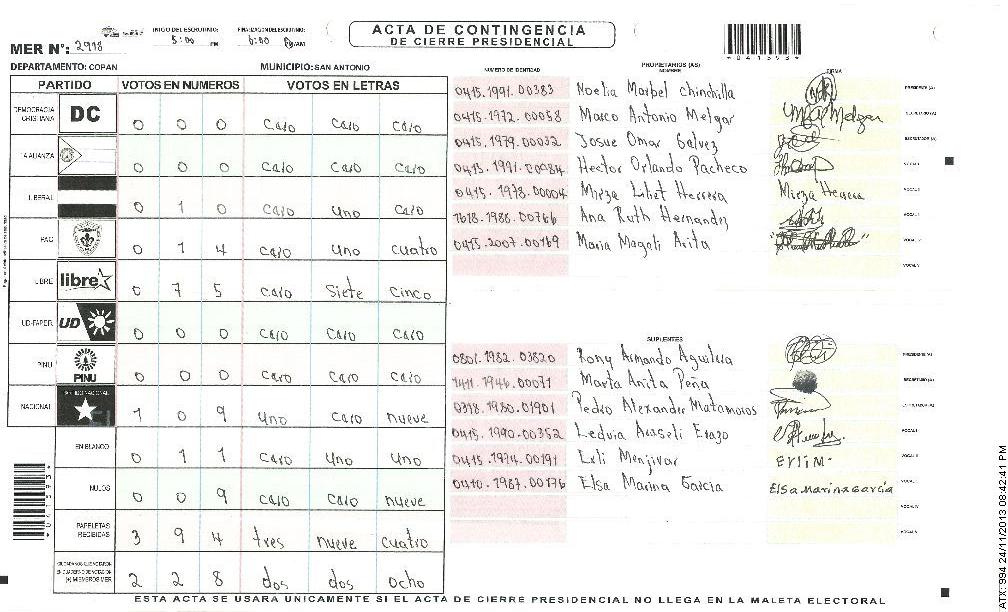 INICIO DEL ESCRUTINIO: FINALIZACION DEL ESCRUTINIO:
5:00 PM 6:00 PM/AM
ACTA DE CONTINGENCIA
DE CIERRE PRESIDENCIAL
MER Nº: 2918
*041593*
DEPARTAMENTO: COPAN MUNICIPIO: SAN ANTONIO
PARTIDO VOTOS EN NUMEROS VOTOS EN LETRAS
DEMOCRACIA CRISTIANA DC 0 0 0 Caro Caro Caro
LA ALIANZA 0 0 0 Caro Caro Caro
LIBERAL 0 1 0 Caro Uno Caro
PAC 0 1 4 Caro Uno Cuatro
LIBRE libre 0 7 5 Caro Siete Cinco
UD-FAPER UD 0 0 0 Caro Caro Caro
PINU PINU 0 0 0 Caro Caro Caro
NACIONAL 1 0 9 Uno Caro nueve
EN BLANCO 0 1 1 Caro Uno Uno
NULOS 0 0 9 Caro Caro nueve
PAPELETAS RECIBIDAS 3 9 4 tres nueve cuatro
2 2 8 dos dos ocho
NUMERO DE IDENTIDAD PROPIETARIOS (AS) NOMBRE FIRMA
0415.1991.00383 Noelia Maribel Chinchilla PRESIDENTE (A)
0415.1972.00058 Marco Antonio Melgar SECRETARIO (A)
0415.1979.00032 Josue Omar Galvez ESCRUTADOR (A)
0415.1991.00984 Hector Orlando Pacheco VOCAL I
0415.1978.00004 Mirza Libet Herrera Mirza Herrera VOCAL II
1618.1988.00766 Ana Ruth Hernandez VOCAL III
0415.2007.00169 Maria Magali Arita VOCAL IV
VOCAL V
SUPLENTES
0801.1982.03820 Rony Armando Aguilera PRESIDENTE (A)
1411.1946.00071 Marta Anita Peña SECRETARIO (A)
0318.1980.01901 Pedro Alexander Matamoros ESCRUTADOR (A)
0415.1990.00352 Leduia Araseli Erazo VOCAL I
0415.1974.00191 Erli Menjivar VOCAL II
0410.1987.00176 Elsa Marina Garcia Elsa Marina Garcia VOCAL III
VOCAL IV
VOCAL V
*041593*
ESTA ACTA SE USARA UNICAMENTE SI EL ACTA DE CIERRE PRESIDENCIAL NO LLEGA EN LA MALETA ELECTORAL
24/11/2013 08:42:41 PM